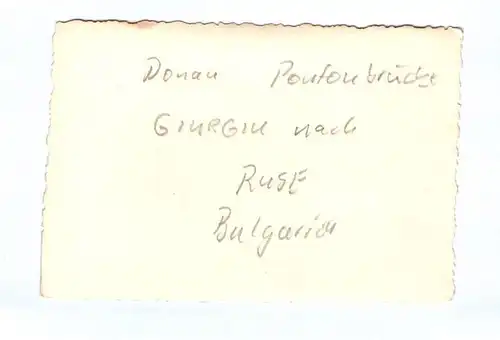 Donau Pontonbrücke
GIURGIU nach
RUSE
Bulgarien